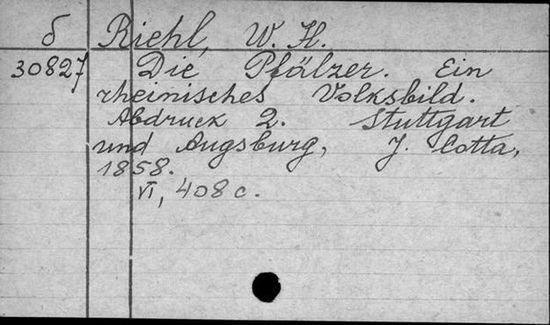 б Riehl, W. H.
30827 Die Pfälzer. Ein
rheinisches Volksbild.
Abdruck 2. Stuttgart
und Augsburg, J. Cotta,
1858.
VI, 408 c.